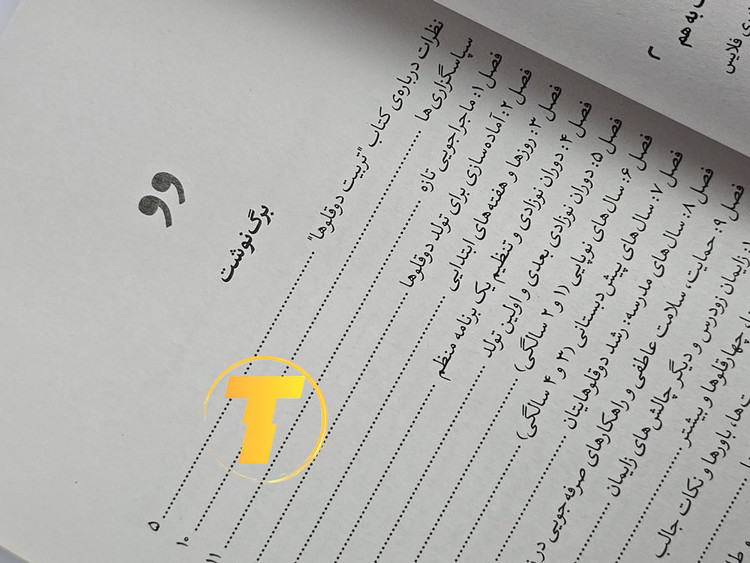 برگ نوشت
نظرات درباره‌ی کتاب "تربیت دوقلوها" ۵
سپاسگزاری ها ۱۰
فصل ۱: ماجراجویی تازه ۱۱
فصل ۲: آماده‌سازی برای تولد دوقلوها
فصل ۳: روزها و هفته‌های ابتدایی
فصل ۴: دوران نوزادی و تنظیم یک برنامه منظم
فصل ۵: دوران نوزادی بعدی و اولین تولد
فصل ۶: سال‌های نوپایی (۱ و ۲ سالگی)
فصل ۷: سال‌های پیش دبستانی (۳ و ۴ سالگی)
فصل ۸: سال‌های مدرسه: رشد دوقلوهایتان
فصل ۹: حمایت، سلامت عاطفی و راهکارهای صرفه جویی در
زایمان زودرس و دیگر چالش‌های زایمان
چهارقلوها و بیشتر
باورها و نکات جالب
به هم
۲
فلایس
T